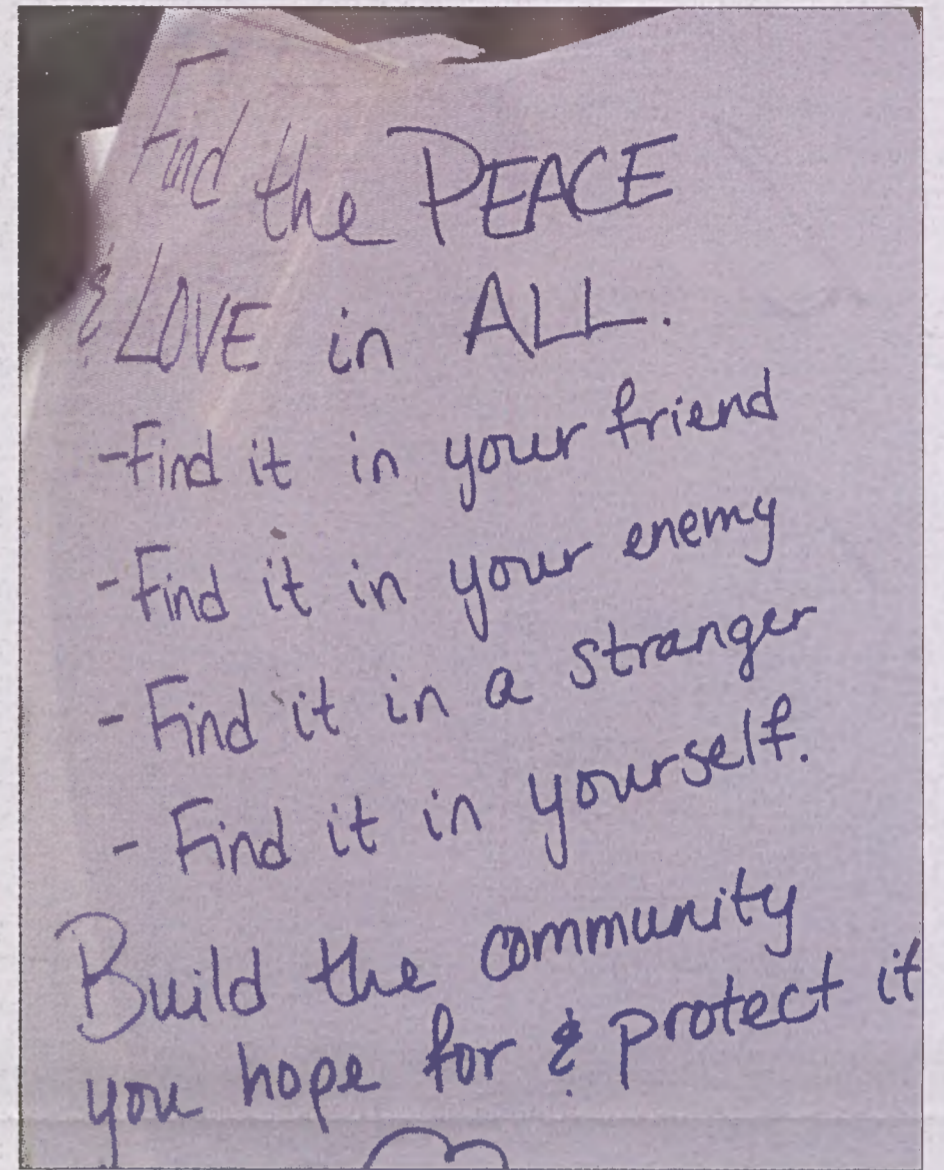 Find the PEACE
& LOVE in ALL.
-Find it in your friend
-Find it in your enemy
- Find it in a stranger
- Find it in yourself.
Build the community
you hope for & protect it